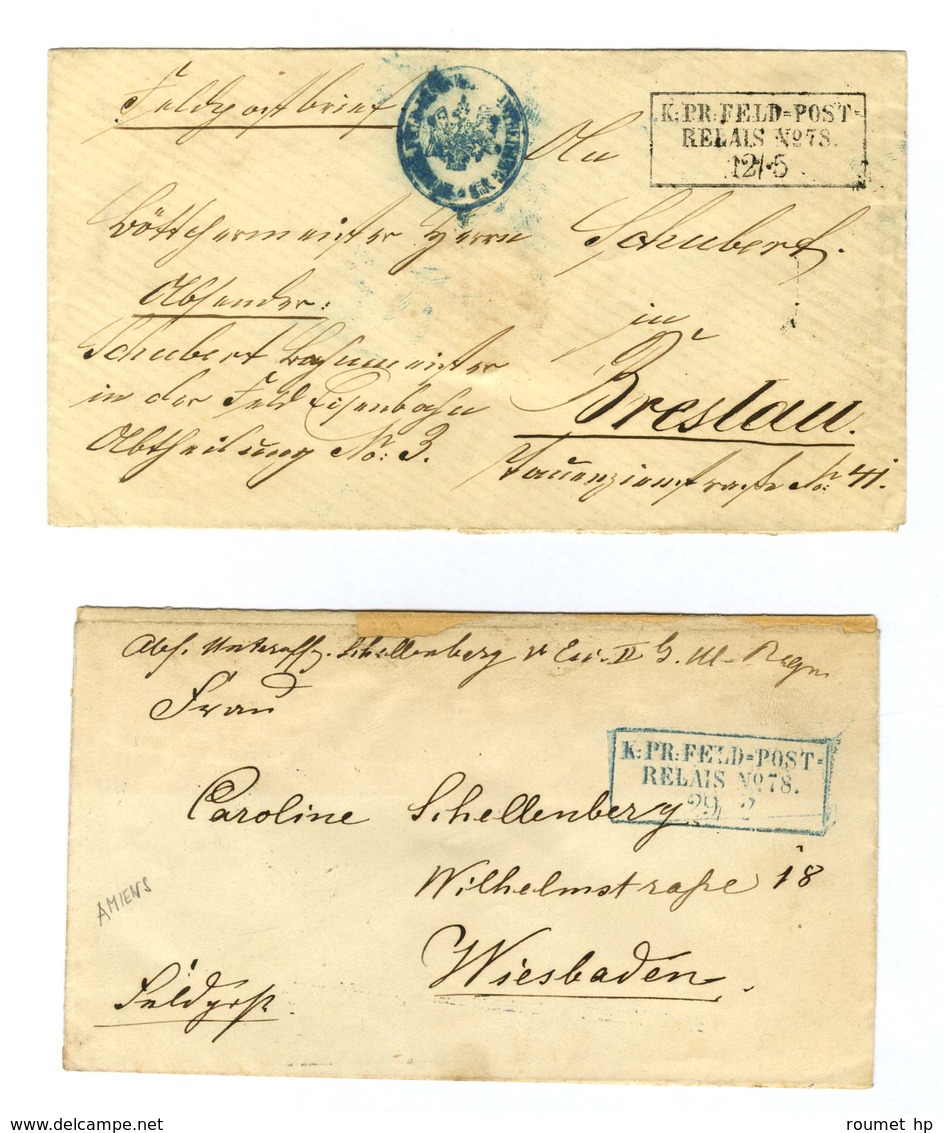 Feldpostbrief
An
K:PR:FELD=POST=
RELAIS No78.
12/5
Böttchermeister Herrn Schubert.
Absender:
in
Schubert Bahnmeister
Breslau.
in der Feld Eisenbahn
Abtheilung No: 3.
Tauenzienstraße No: 41.
Abs. Unteroffz. Schellenberg
Frau
K:PR:FELD=POST=
RELAIS No78.
29 2
Caroline Schellenberg
Wilhelmstraße 18
AMIENS
Wiesbaden.
Feldpost
www.delcampe.net
roumet hp